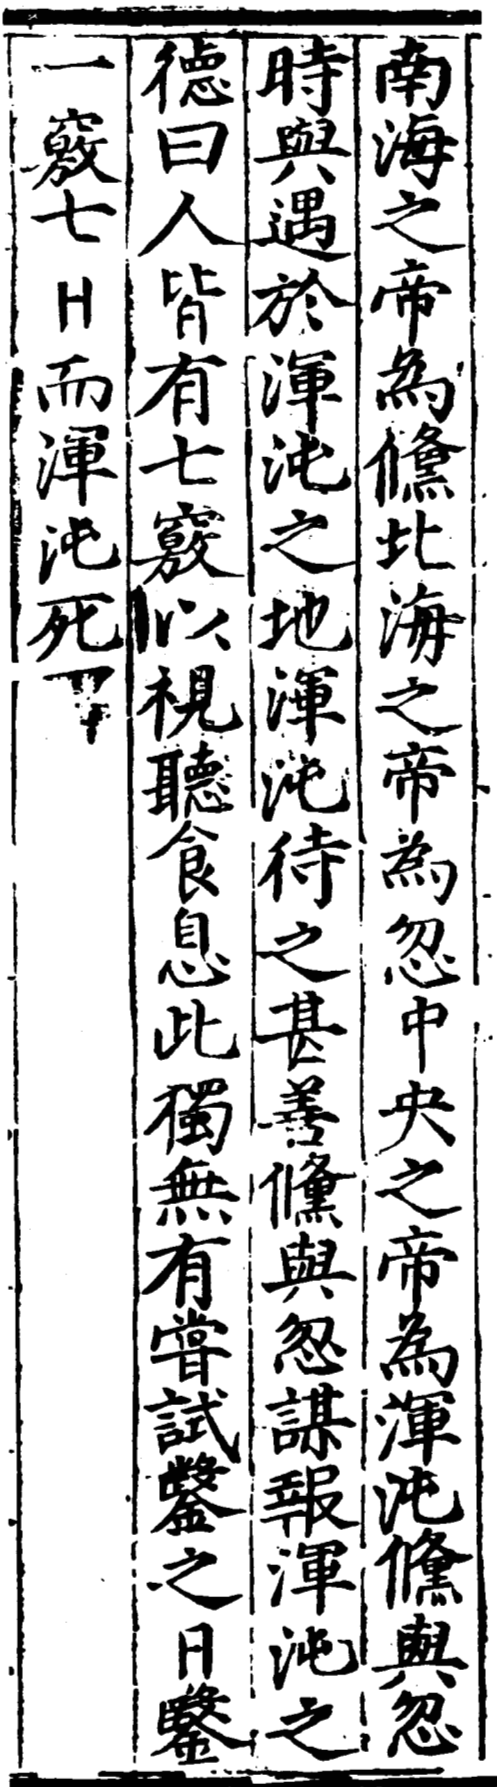 南海之帝為儵北海之帝為忽中央之帝為渾沌儵與忽
時與遇於渾沌之地渾沌待之甚善儵與忽謀報渾沌之
德曰人皆有七竅以視聽食息此獨無有嘗試鑿之日鑿
一竅七日而渾沌死